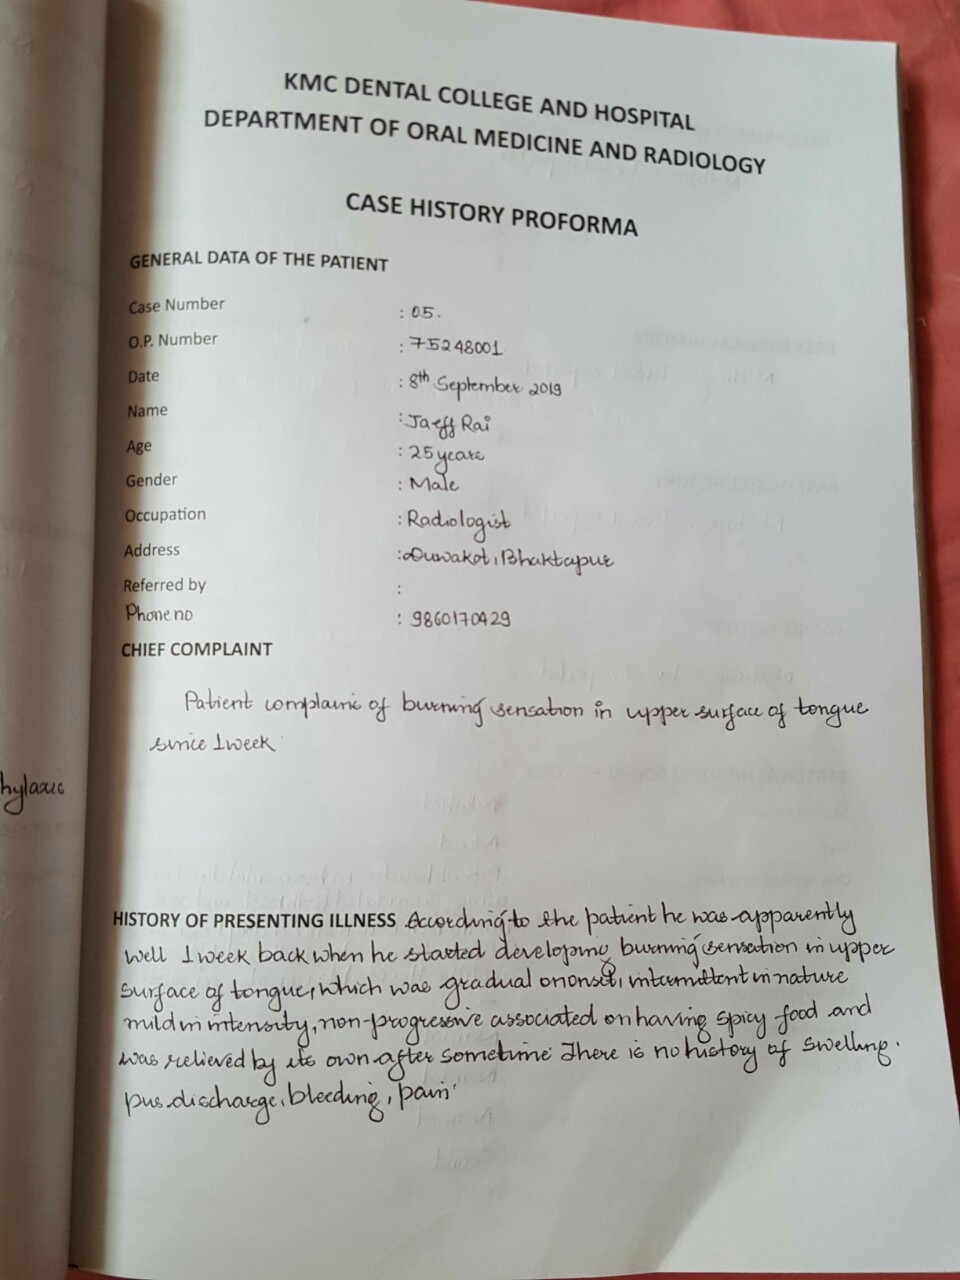 KMC DENTAL COLLEGE AND HOSPITAL
DEPARTMENT OF ORAL MEDICINE AND RADIOLOGY
CASE HISTORY PROFORMA
GENERAL DATA OF THE PATIENT
Case Number : 05.
O.P. Number : 75248001
Date : 8th September 2019
Name : Jaeff Rai
Age : 25 years
Gender : Male
Occupation : Radiologist
Address : Duwakot, Bhaktapur
Referred by :
Phone no : 9860170429
CHIEF COMPLAINT
Patient complains of burning sensation in upper surface of tongue
since 1 week
hylaxis
HISTORY OF PRESENTING ILLNESS According to the patient he was apparently
well 1 week back when he started developing burning sensation in upper
surface of tongue, which was gradual on onset, intermittent in nature
mild in intensity, non-progressive associated on having spicy food and
was relieved by its own after sometime. There is no history of swelling.
pus discharge, bleeding, pain.